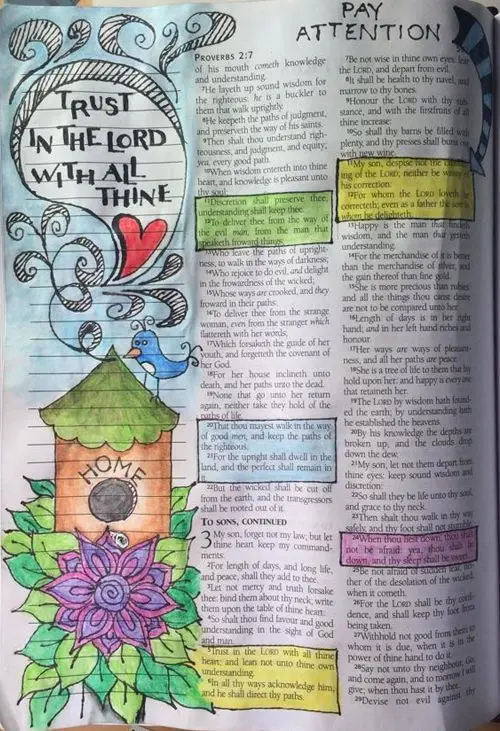 TRUST
IN THE LORD
WITH ALL
THINE
HOME
PROVERBS 2:7
of his mouth cometh knowledge
and understanding.
7He layeth up sound wisdom for
the righteous: he is a buckler to
them that walk uprightly.
8He keepeth the paths of judgment,
and preserveth the way of his saints.
9Then shalt thou understand righ-
teousness, and judgment, and equity;
yea, every good path.
10When wisdom entereth into thine
heart, and knowledge is pleasant unto
thy soul;
11Discretion shall preserve thee,
understanding shall keep thee:
12To deliver thee from the way of
the evil man, from the man that
speaketh froward things;
13Who leave the paths of upright-
ness, to walk in the ways of darkness;
14Who rejoice to do evil, and delight
in the frowardness of the wicked;
15Whose ways are crooked, and they
froward in their paths:
16To deliver thee from the strange
woman, even from the stranger which
flattereth with her words;
17Which forsaketh the guide of her
youth, and forgetteth the covenant of
her God.
18For her house inclineth unto
death, and her paths unto the dead.
19None that go unto her return
again, neither take they hold of the
paths of life.
20That thou mayest walk in the way
of good men, and keep the paths of
the righteous.
21For the upright shall dwell in the
land, and the perfect shall remain in
22But the wicked shall be cut off
from the earth, and the transgressors
shall be rooted out of it.
TO SONS, CONTINUED
3 My son, forget not my law; but let
thine heart keep my command-
ments:
2For length of days, and long life,
and peace, shall they add to thee.
3Let not mercy and truth forsake
thee: bind them about thy neck; write
them upon the table of thine heart:
4So shalt thou find favour and good
understanding in the sight of God
and man.
5Trust in the LORD with all thine
heart; and lean not unto thine own
understanding.
6In all thy ways acknowledge him,
and he shall direct thy paths.
PAY
ATTENTION
7Be not wise in thine own eyes: fear
the LORD, and depart from evil.
8It shall be health to thy navel, and
marrow to thy bones.
9Honour the LORD with thy sub-
stance, and with the firstfruits of all
thine increase:
10So shall thy barns be filled with
plenty, and thy presses shall burst out
with new wine.
11My son, despise not the
ing of the LORD; neither be weary of
his correction:
12For whom the LORD loveth he
correcteth; even as a father the son in
whom he delighteth.
13Happy is the man that findeth
wisdom, and the man that getteth
understanding.
14For the merchandise of it is better
than the merchandise of silver, and
the gain thereof than fine gold.
15She is more precious than rubies:
and all the things thou canst desire
are not to be compared unto her.
16Length of days is in her right
hand; and in her left hand riches and
honour.
17Her ways are ways of pleasant-
ness, and all her paths are peace.
18She is a tree of life to them that lay
hold upon her: and happy is every one
that retaineth her.
19The LORD by wisdom hath found-
ed the earth; by understanding hath
he established the heavens.
20By his knowledge the depths are
broken up, and the clouds drop
down the dew.
21My son, let not them depart from
thine eyes: keep sound wisdom and
discretion:
22So shall they be life unto thy soul,
and grace to thy neck.
23Then shalt thou walk in thy way
safely, and thy foot shall not stumble.
24When thou liest down, thou shalt
not be afraid: yea, thou shalt lie
down, and thy sleep shall be sweet.
25Be not afraid of sudden fear, nei-
ther of the desolation of the wicked,
when it cometh.
26For the LORD shall be thy confi-
dence, and shall keep thy foot from
being taken.
27Withhold not good from them to
whom it is due, when it is in the
power of thine hand to do it.
28Say not unto thy neighbour, Go,
and come again, and to morrow I will
give; when thou hast it by thee.
29Devise not evil against thy